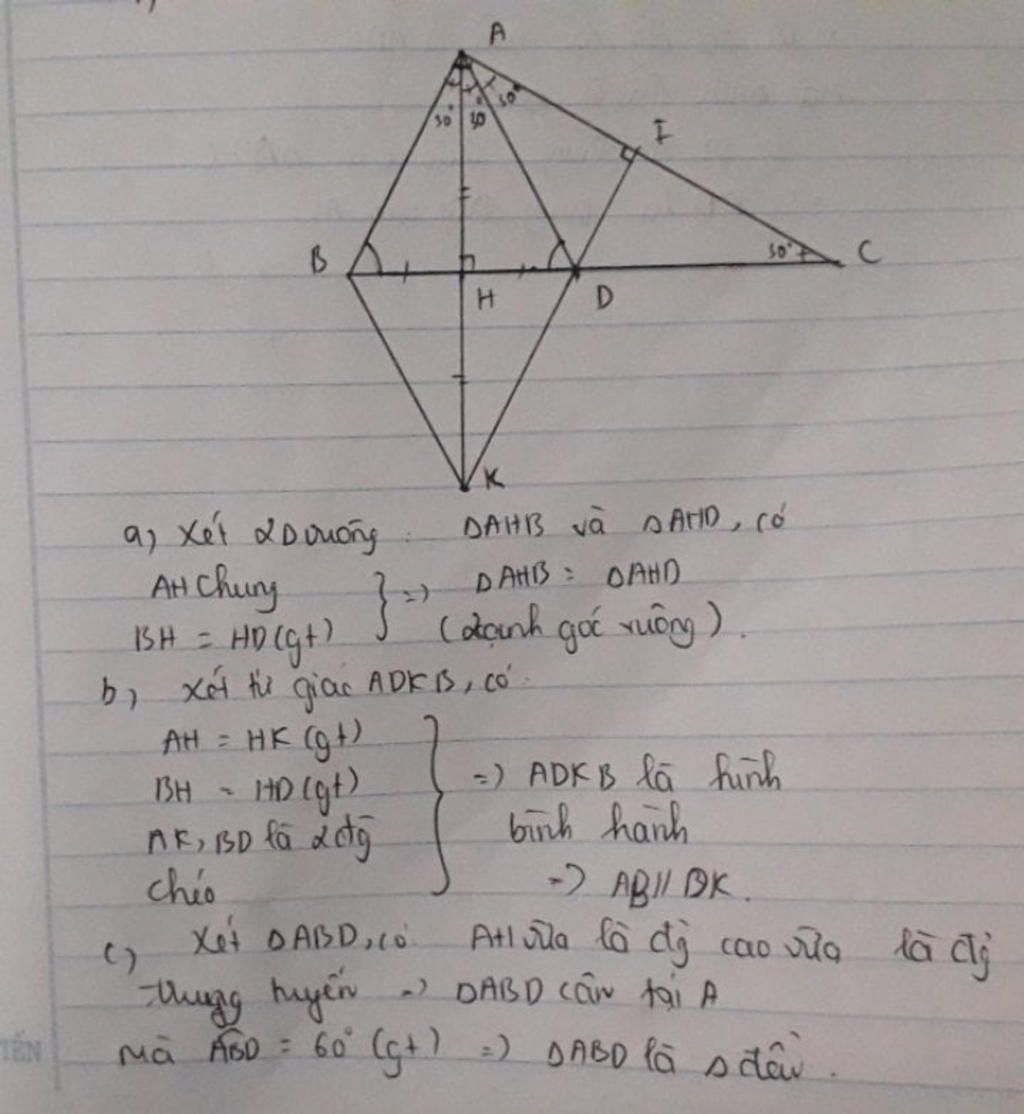 A
30° 30° 30°
I
B
H
D
30°
C
K
a) Xét 2Δ vuông : ΔAHB và ΔAHD, có
AH chung
BH = HD (gt)
} => ΔAHB = ΔAHD
(2 cạnh góc vuông).
b) Xét tứ giác ADKB, có:
AH = HK (gt)
BH = HD (gt)
AK, BD là 2 đg
chéo
} => ADKB là hình
bình hành
=> AB // DK.
c) Xét ΔABD, có: AH vừa là đg cao vừa là đg
trung tuyến => ΔABD cân tại A
Mà ABD = 60° (gt) => ΔABD là Δ đều.